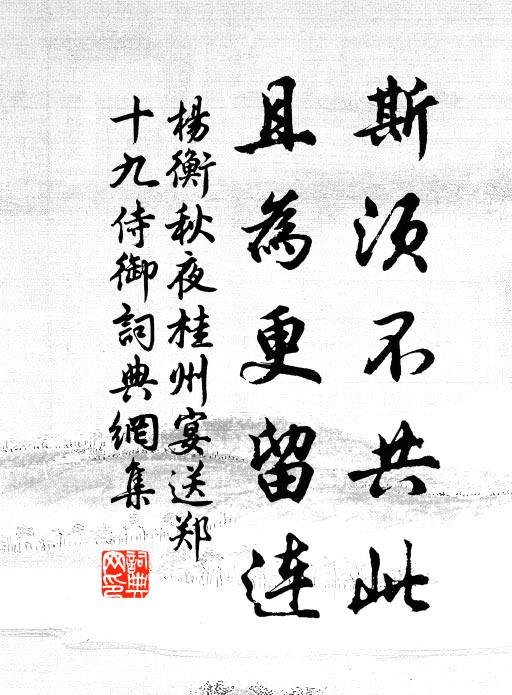 斯须不共此
且為更留連
楊衡秋夜桂州宴送郑
十九侍御詞典網集
詞典
网印